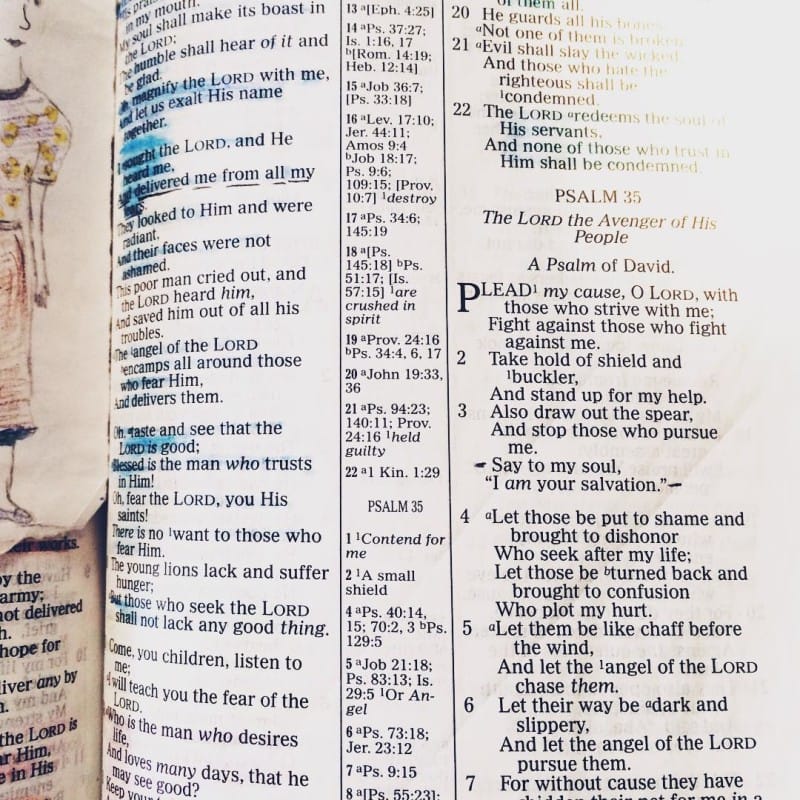 works.
by the
army;
not delivered
hope for
any by
the LORD is
Him,
in His
praise
in my mouth.
My soul shall make its boast in
the LORD;
The humble shall hear of it and
be glad.
Oh, magnify the LORD with me,
And let us exalt His name
together.
I sought the LORD, and He
heard me,
And delivered me from all my
fears.
They looked to Him and were
radiant,
And their faces were not
ashamed.
This poor man cried out, and
the LORD heard him,
And saved him out of all his
troubles.
The angel of the LORD
encamps all around those
who fear Him,
And delivers them.
Oh, taste and see that the
LORD is good;
Blessed is the man who trusts
in Him!
Oh, fear the LORD, you His
saints!
There is no ¹want to those who
fear Him.
The young lions lack and suffer
hunger;
But those who seek the LORD
shall not lack any good thing.
Come, you children, listen to
me;
I will teach you the fear of the
LORD.
Who is the man who desires
life,
And loves many days, that he
may see good?
Keep your
13 a[Eph. 4:25]
14 aPs. 37:27;
Is. 1:16, 17
b[Rom. 14:19;
Heb. 12:14]
15 aJob 36:7;
[Ps. 33:18]
16 aLev. 17:10;
Jer. 44:11;
Amos 9:4
bJob 18:17;
Ps. 9:6;
109:15; [Prov.
10:7] ¹destroy
17 aPs. 34:6;
145:19
18 a[Ps.
145:18] bPs.
51:17; [Is.
57:15] ¹are
crushed in
spirit
19 aProv. 24:16
bPs. 34:4, 6, 17
20 aJohn 19:33,
36
21 aPs. 94:23;
140:11; Prov.
24:16 ¹held
guilty
22 a1 Kin. 1:29
PSALM 35
1 ¹Contend for
me
2 ¹A small
shield
4 aPs. 40:14,
15; 70:2, 3 bPs.
129:5
5 aJob 21:18;
Ps. 83:13; Is.
29:5 ¹Or An-
gel
6 aPs. 73:18;
Jer. 23:12
7 aPs. 9:15
8 a[Ps. 55:23];
of them all.
20 He guards all his bones;
aNot one of them is broken.
21 aEvil shall slay the wicked,
And those who hate the
righteous shall be
¹condemned.
22 The LORD aredeems the soul of
His servants,
And none of those who trust in
Him shall be condemned.
PSALM 35
The LORD the Avenger of His
People
A Psalm of David.
PLEAD¹ my cause, O LORD, with
those who strive with me;
Fight against those who fight
against me.
2 Take hold of shield and
¹buckler,
And stand up for my help.
3 Also draw out the spear,
And stop those who pursue
me.
Say to my soul,
“I am your salvation.”
4 aLet those be put to shame and
brought to dishonor
Who seek after my life;
Let those be bturned back and
brought to confusion
Who plot my hurt.
5 aLet them be like chaff before
the wind,
And let the ¹angel of the LORD
chase them.
6 Let their way be adark and
slippery,
And let the angel of the LORD
pursue them.
7 For without cause they have
hidden their net for me in a